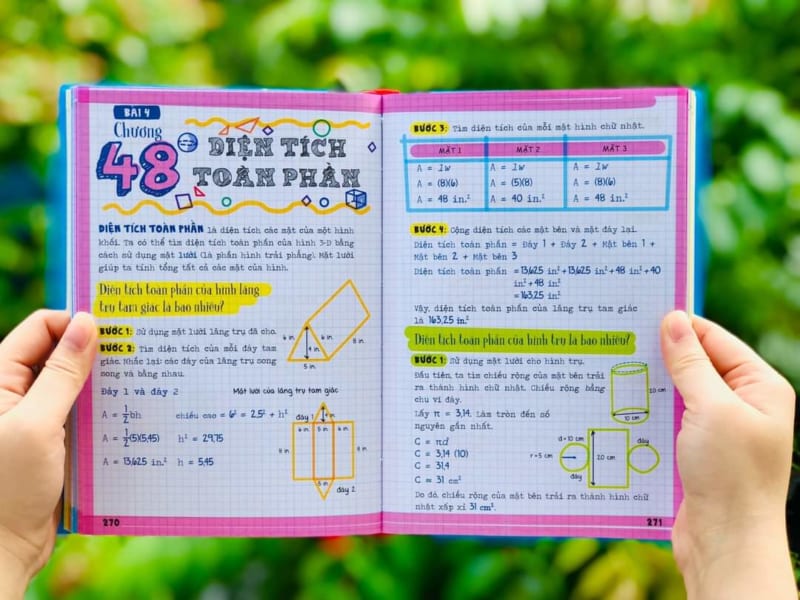 BÀI 4
Chương
48
DIỆN TÍCH
TOÀN PHẦN
DIỆN TÍCH TOÀN PHẦN là diện tích các mặt của một hình
khối. Ta có thể tìm diện tích toàn phần của hình 3-D bằng
cách sử dụng mặt lưới (là phần hình trải phẳng). Mặt lưới
giúp ta tính tổng tất cả các mặt của hình.
Diện tích toàn phần của hình lăng
trụ tam giác là bao nhiêu?
BƯỚC 1: Sử dụng mặt lưới lăng trụ đã cho.
BƯỚC 2: Tìm diện tích của mỗi đáy tam
giác. Nhắc lại: các đáy của lăng trụ song
song và bằng nhau.
6 in.
6 in.
4 in.
8 in.
5 in.
Đáy 1 và đáy 2
A = 1/2 bh
chiều cao = 6² = 2,5² + h²
A = 1/2 (5)(5,45)
h² = 29,75
A = 13,625 in.²
h = 5,45
Mặt lưới của lăng trụ tam giác
đáy 1
6 in.
5 in.
6 in.
8 in.
8 in.
5 in.
đáy 2
270
BƯỚC 3: Tìm diện tích của mỗi mặt hình chữ nhật.
MẶT 1
MẶT 2
MẶT 3
A = lw
A = lw
A = lw
A = (8)(6)
A = (5)(8)
A = (8)(6)
A = 48 in.²
A = 40 in.²
A = 48 in.²
BƯỚC 4: Cộng diện tích các mặt bên và mặt đáy lại.
Diện tích toàn phần = Đáy 1 + Đáy 2 + Mặt bên 1 +
Mặt bên 2 + Mặt bên 3
Diện tích toàn phần = 13,625 in² + 13,625 in² + 48 in² + 40
in² + 48 in²
= 163,25 in²
Vậy, diện tích toàn phần của lăng trụ tam giác
là 163,25 in²
Diện tích toàn phần của hình trụ là bao nhiêu?
BƯỚC 1: Sử dụng mặt lưới cho hình trụ.
Đầu tiên, ta tìm chiều rộng của mặt bên trải
ra thành hình chữ nhật. Chiều rộng bằng
chu vi đáy.
Lấy π = 3,14. Làm tròn đến số
nguyên gần nhất.
C = πd
C = 3,14 (10)
C = 31,4
C ≈ 31 cm²
20 cm
10 cm
d = 10 cm
r = 5 cm
20 cm
đáy
đáy
Do đó, chiều rộng của mặt bên trải ra thành hình chữ
nhật xấp xỉ 31 cm².
271